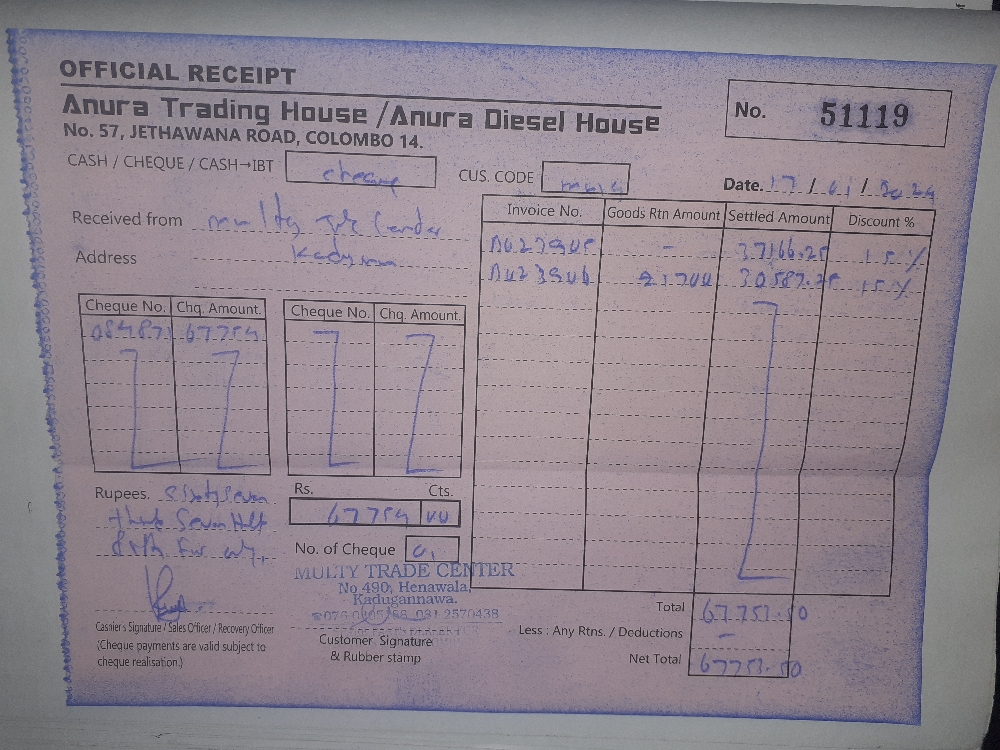 OFFICIAL RECEIPT
Anura Trading House /Anura Diesel House
No. 57, JETHAWANA ROAD, COLOMBO 14.
No. 51119
CASH / CHEQUE / CASH→IBT cheque
CUS. CODE
Date. 17 / 01 / 2024
Received from multy Center
Address
Invoice No. Goods Rtn Amount Settled Amount Discount %
- 37166.25 15 %
30587.25 15 %
Cheque No. Chq. Amount. Cheque No. Chq. Amount.
084871 67754
Rupees. Sixty Seven
Seven
Rs. Cts.
67754 00
No. of Cheque 01
MULTY TRADE CENTER
No 490, Henawala,
Kadugannawa.
081 2570438
Cashier's Signature / Sales Officer / Recovery Officer
(Cheque payments are valid subject to
cheque realisation.)
Customer Signature
& Rubber stamp
Total 67753.50
Less : Any Rtns. / Deductions -
Net Total 67753.50